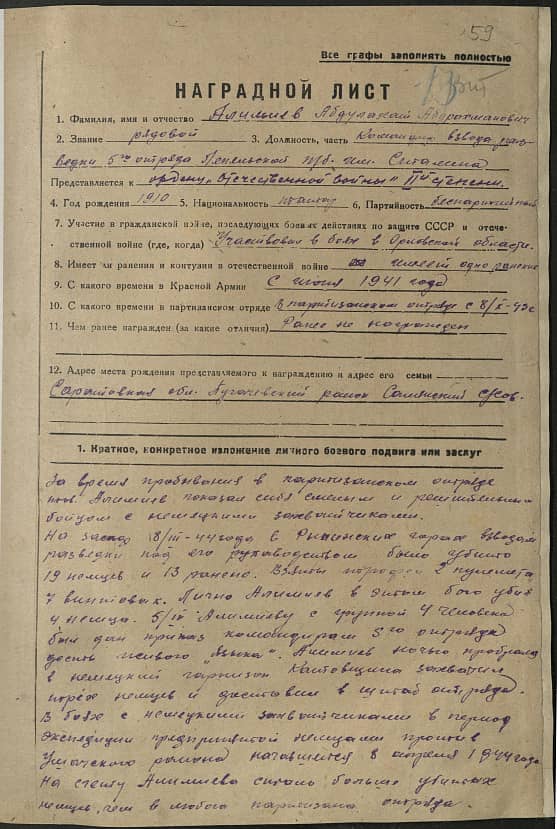 59
Все графы заполнять полностью
НАГРАДНОЙ ЛИСТ
1. Фамилия, имя и отчество Алимиев Абдулахай Абдрахманович
2. Звание рядовой 3. Должность, часть Командир взвода раз-
ведки 5го отряда Лепельской п/б. им. Сталина
Представляется к ордену „Отечественной войны“ IIй степени.
4. Год рождения 1910 5. Национальность татар 6. Партийность беспартийный
7. Участие в гражданской войне, последующих боевых действиях по защите СССР и отече-
ственной войне (где, когда) Участвовал в боях в Орловской области.
8. Имеет ли ранения и контузии в отечественной войне имеет одно ранение
9. С какого времени в Красной Армии С июня 1941 года
10. С какого времени в партизанском отряде В партизанском отряде с 8/X-43г
11. Чем ранее награжден (за какие отличия) Ранее не награжден
12. Адрес места рождения представляемого к награждению и адрес его семьи
Саратовская обл. Пугачевский район
1. Краткое, конкретное изложение личного боевого подвига или заслуг
За время пребывания в партизанском отряде
тов. Алимиев показал себя смелым и решительным
бойцом с немецкими захватчиками.
На 8/III-44 года в горах взводом
разведки под его руководством было убито
19 немцев и 13 ранено. Взяты 2 пулемета
7 винтовок. Лично Алимиев в этом бою убил
4 немца. 5/IV Алимиеву с группой 4 человека
был дан приказ командиром 5го отряда
достать живого „языка“. Алимиев ночью пробрался
в немецкий гарнизон захватил
трёх немцев и доставил в штаб отряда.
В боях с немецкими захватчиками в период
экспедиции предпринятой немцами против
Ушачского района начавшейся 8 апреля 1944 года
На счету Алимиева больше убитых
немцев, чем в любого партизана отряда.